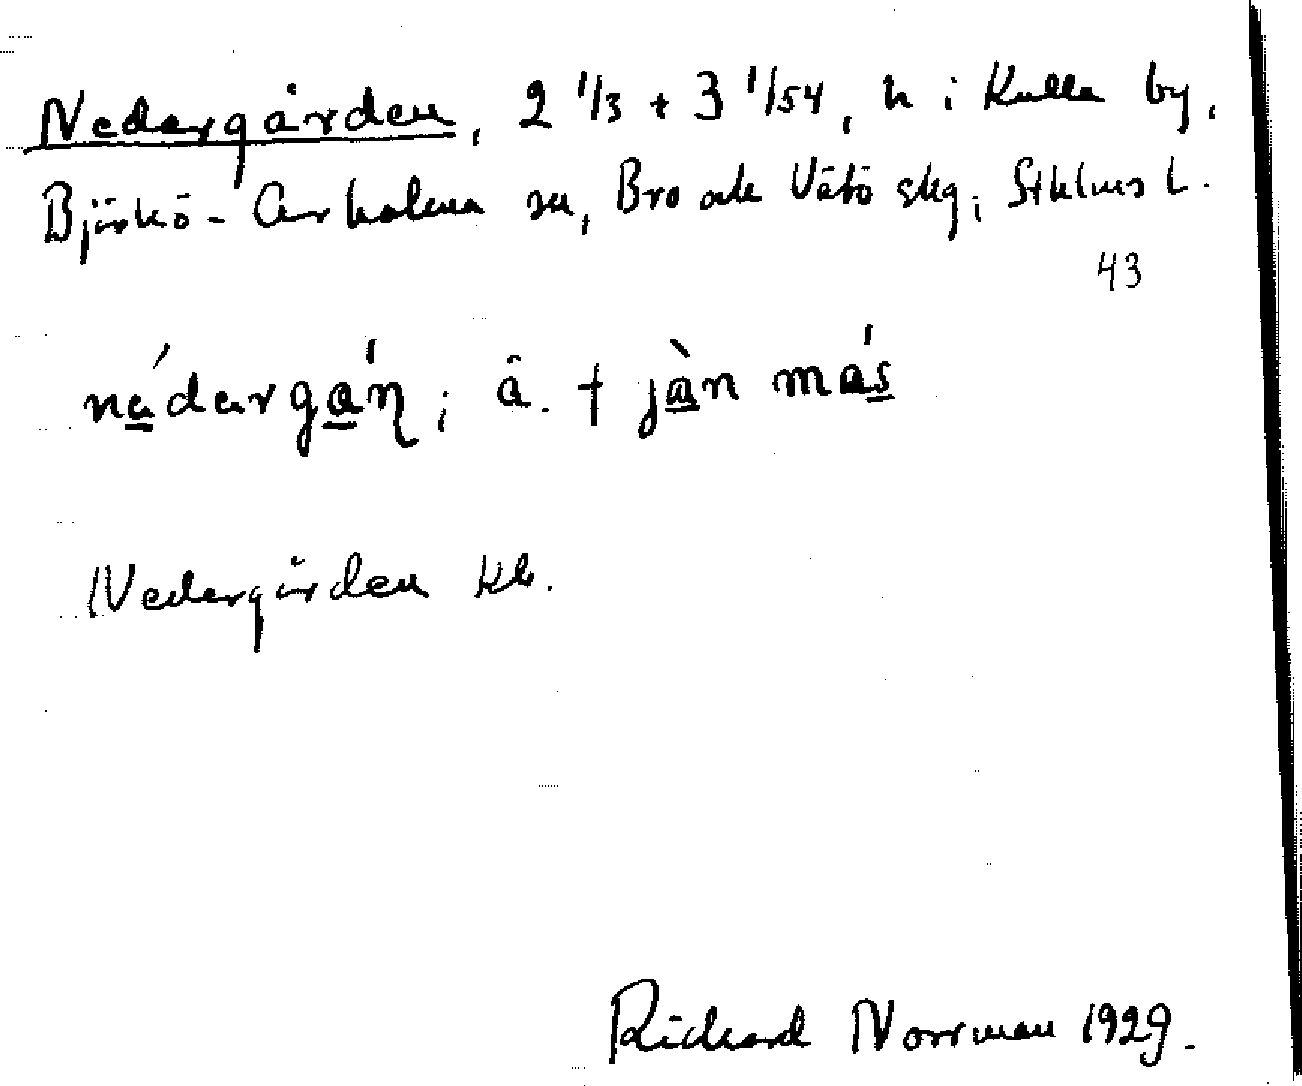 Nedergården, 2 1/3 + 3 1/54, h i Kulla by,
Björkö-Arholma sn, Bro och Vätö skg, Sthlms l.
43
nä́dərgá̱ṇ; ä. † jà̱n má̱s
Nedergården kb.
Richard Norrman 1929.